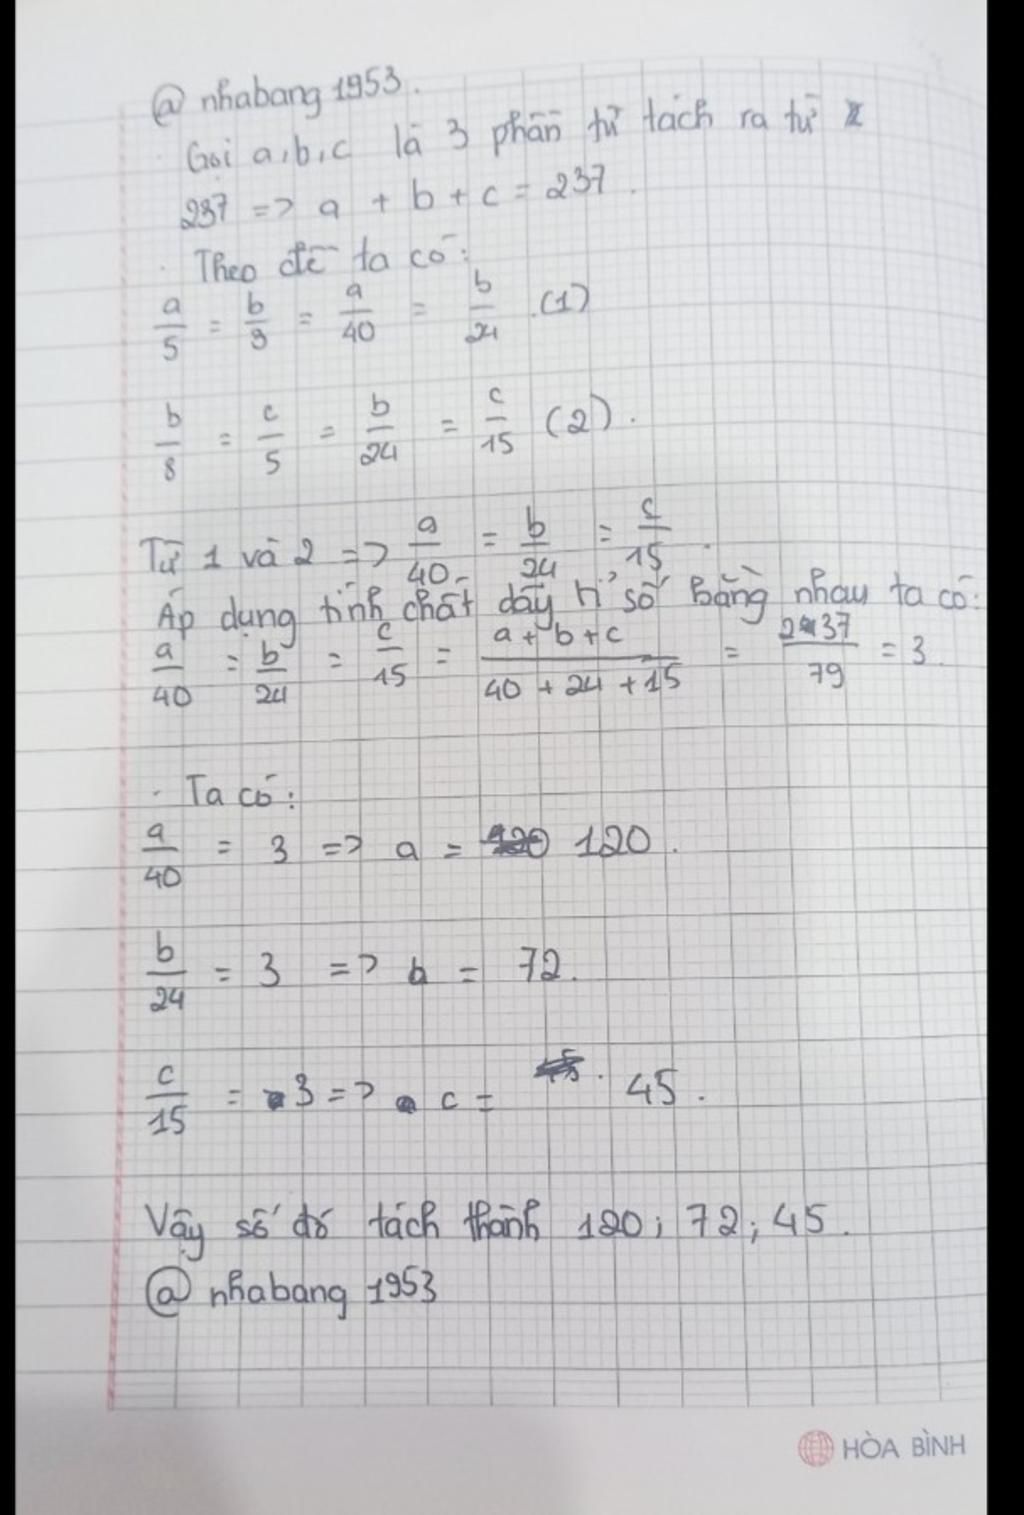 @ nhabang 1953.
Gọi a,b,c là 3 phần tử tách ra từ
237 => a + b + c = 237.
Theo đề ta có:
a/5 = b/3 = a/40 = b/24 (1)
b/8 = c/5 = b/24 = c/15 (2).
Từ 1 và 2 => a/40 = b/24 = c/15.
Áp dụng tính chất dãy tỉ số bằng nhau ta có:
a/40 = b/24 = c/15 = a + b + c / 40 + 24 + 15 = 237/79 = 3.
Ta có:
a/40 = 3 => a = 120.
b/24 = 3 => b = 72.
c/15 = 3 => c = 45.
Vậy số đó tách thành 120; 72; 45.
@ nhabang 1953
HÒA BÌNH